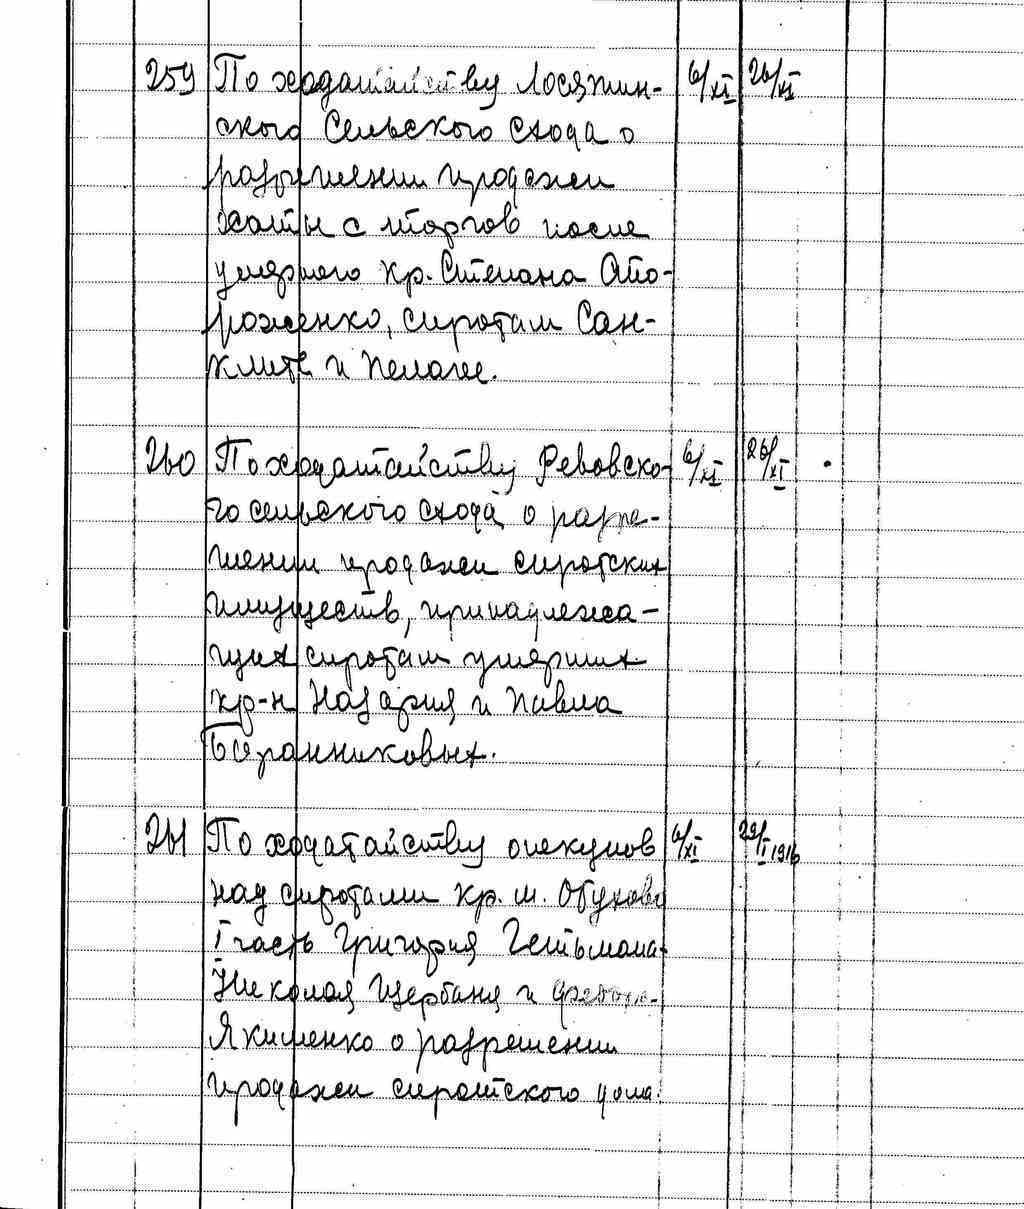 259 По ходатайству Лосятин- 6/XI 26/XI
ского Сельского схода о
разрешении продажи
хаты с торгов после
умершего кр. Степана Сто-
роженко, сиротам Сан-
клите и Пелагее.
260 По ходатайству Ревовско- 6/XI 26/XI
го сельского схода о разре-
шении продажи сиротских
имуществ, принадлежа-
щих сиротам умерших
кр-н Назария и Павла
Баранниковых.
261 По ходатайству опекунов 6/XI 29/I 1916
над сиротами кр. м. Обухова
I часть Григория Гетьмана
Николая Щербаня и
Якименко о разрешении
продажи сиротского дома.